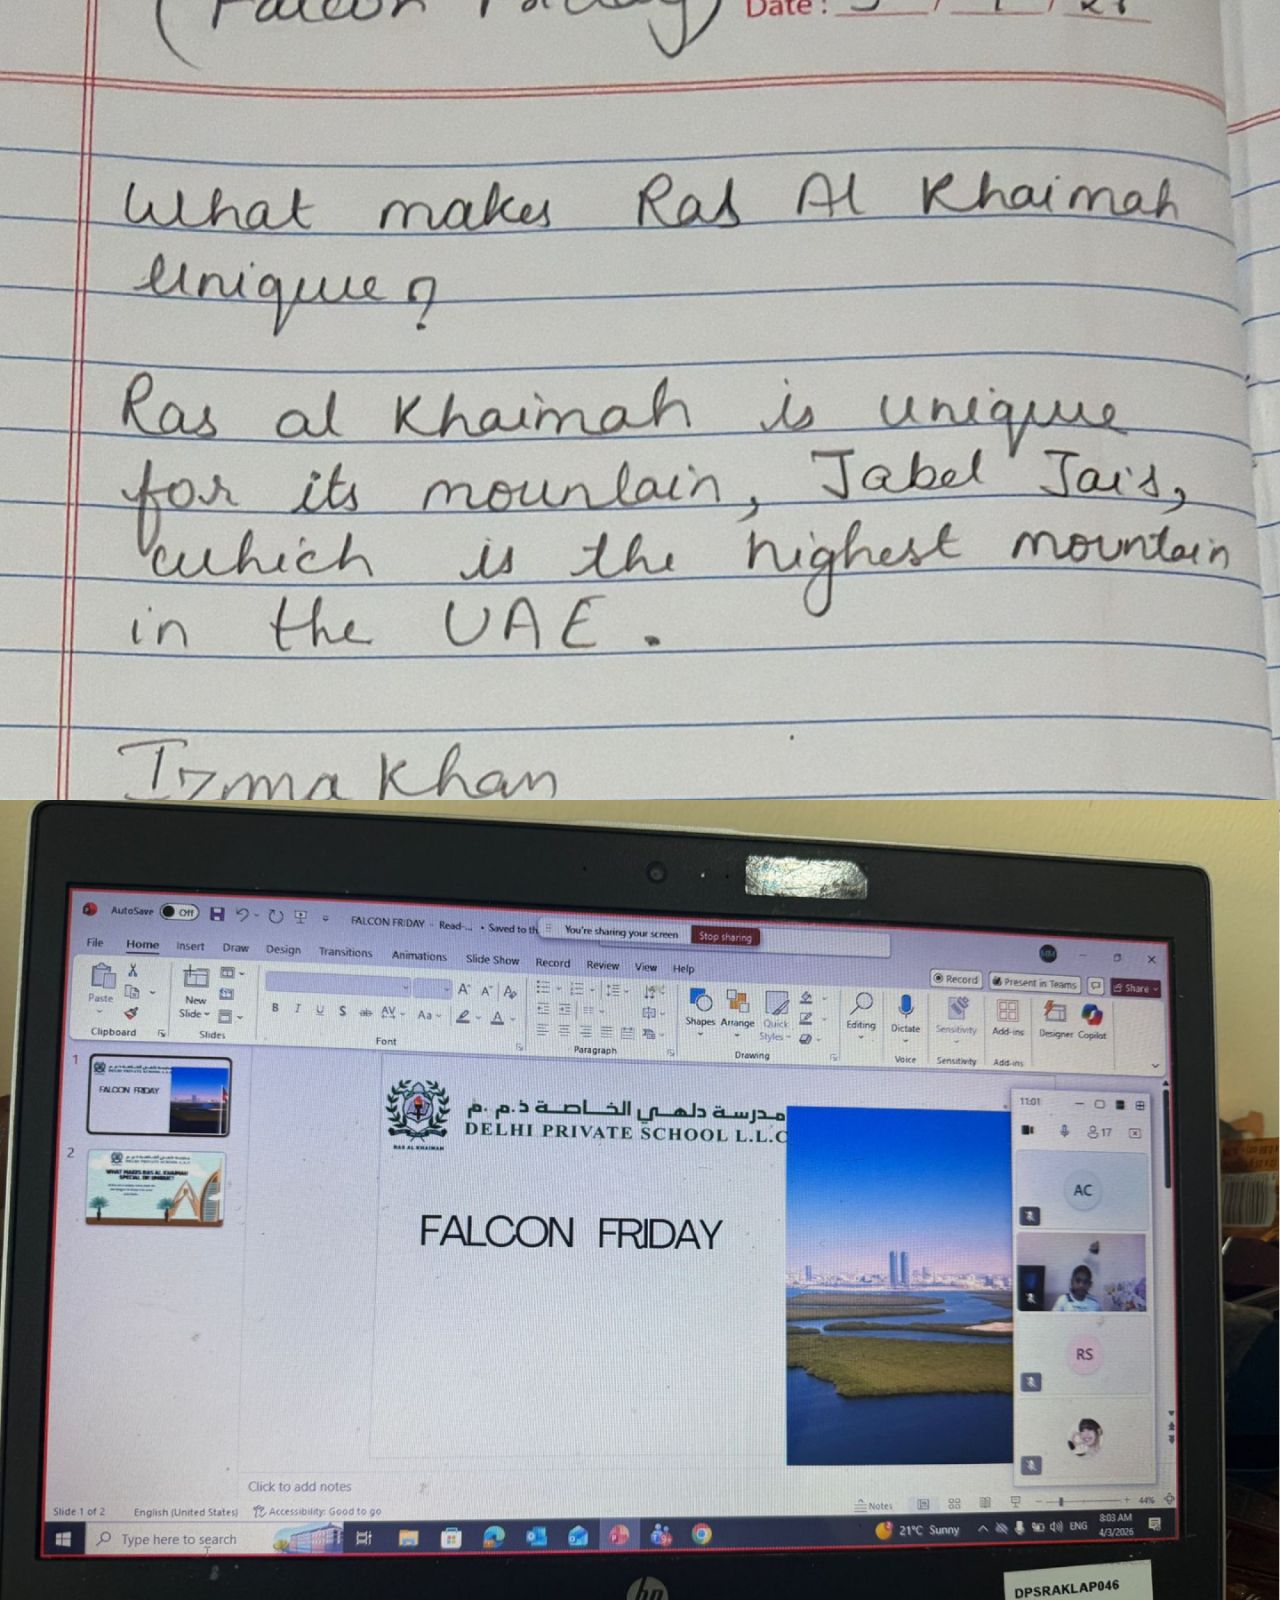 (Falcon Friday) Date :
What makes Ras Al Khaimah
Unique?
Ras al Khaimah is unique
for its mountain, Jabel Jais,
which is the highest mountain
in the UAE.
Izma Khan
AutoSave Off FALCON FRIDAY - Read-... • Saved to th You're sharing your screen Stop sharing
File Home Insert Draw Design Transitions Animations Slide Show Record Review View Help
Record Present in Teams Share
Paste New Slide Shapes Arrange Quick Styles Editing Dictate Sensitivity Add-ins Designer Copilot
Clipboard Slides Font Paragraph Drawing Voice Sensitivity Add-ins
1
FALCON FRIDAY
2
WHAT MAKES RAS AL KHAIMAH
SPECIAL OR UNIQUE?
مدرسة دلهي الخاصة ذ.م.م.
DELHI PRIVATE SCHOOL L.L.C
RAS AL KHAIMAH
FALCON FRIDAY
11:01
17
AC
RS
Click to add notes
Slide 1 of 2 English (United States) Accessibility: Good to go Notes 44%
Type here to search 21°C Sunny ENG 8:03 AM
4/3/2026
hp
DPSRAKLAP046